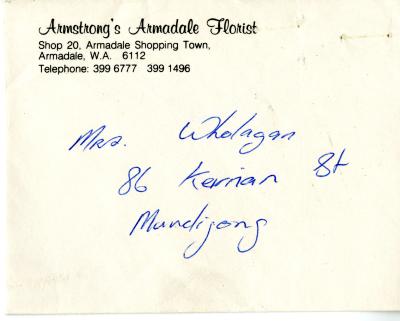 Armstrong's Armadale Florist
Shop 20, Armadale Shopping Town,
Armadale, W.A. 6112
Telephone: 399 6777 399 1496
Mrs. Wholagan
86 Kernan St
Mundijong